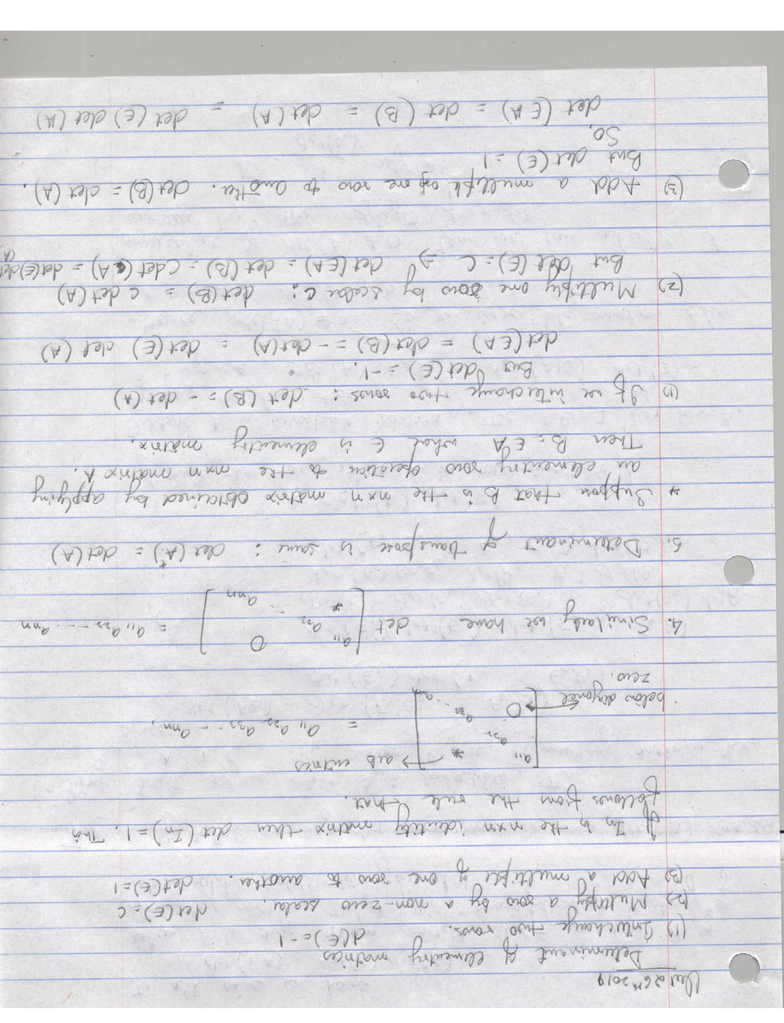 26th 2019
Determinant of elementry matrices
(1) Interchange two rows. d(E) = -1
(2) Multiply a row by a non-zero scalar. det(E) = C
(3) Add a multiple of one row to another. det(E) = 1
If In is the nxn identity matrix then det(In) = 1. This
follows from the rule that.
[ a11 a22 * → arb entries
0 a33 ... a ] = a11 a22 a33 ... ann.
below diagonal
zero.
4. Similarly we have det [ a11 a22 0 * ... ann ] = a11 a22 --- ann
5. Determinant of transpose is same : det(Aᵗ) = det(A)
* Suppose that B is the nxn matrix obtained by applying
an elementry row operation to the nxn matrix A.
Then B = EA what E is elementry matrix.
(1) If we interchange two rows : det(B) = - det(A)
But det(E) = -1.
det(EA) = det(B) = - det(A) = det(E) det(A)
(2) Multiply one row by scalar c: det(B) = c det(A)
But det(E) = C → det(EA) = det(B) = C det(A) = det(E) det(A)
(3) Add a multiple of one row to another. det(B) = det(A).
But det(E) = 1
So,
det(EA) = det(B) = det(A) = det(E) det(A)